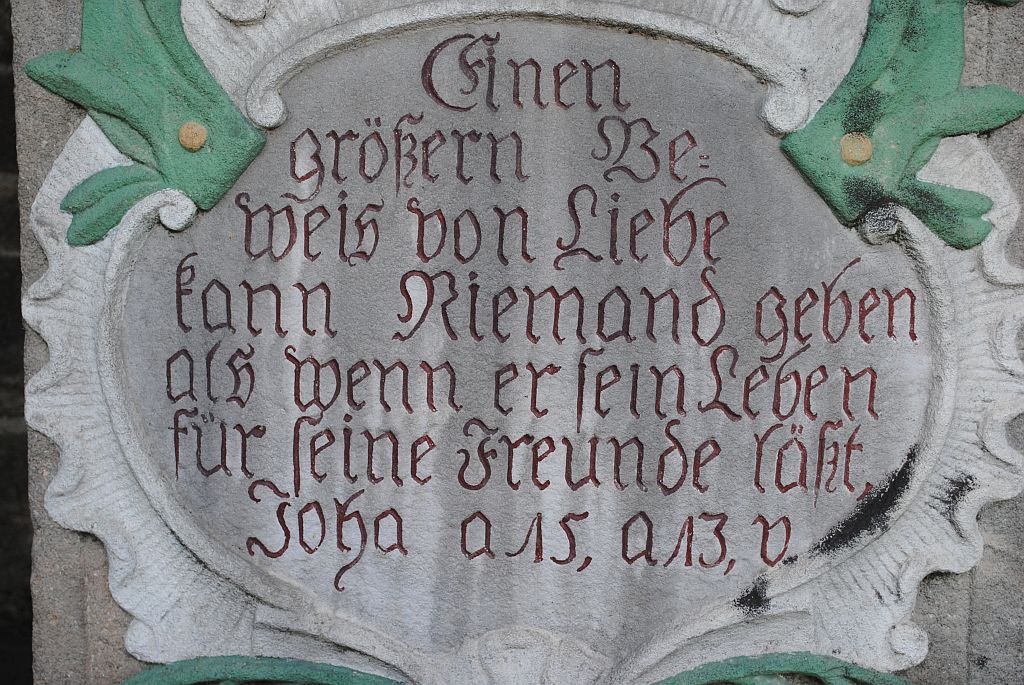 Einen
größern Be=
weis von Liebe
kann Niemand geben
als wenn er sein Leben
für seine Freunde läßt,
Joha a 15, a 13, v